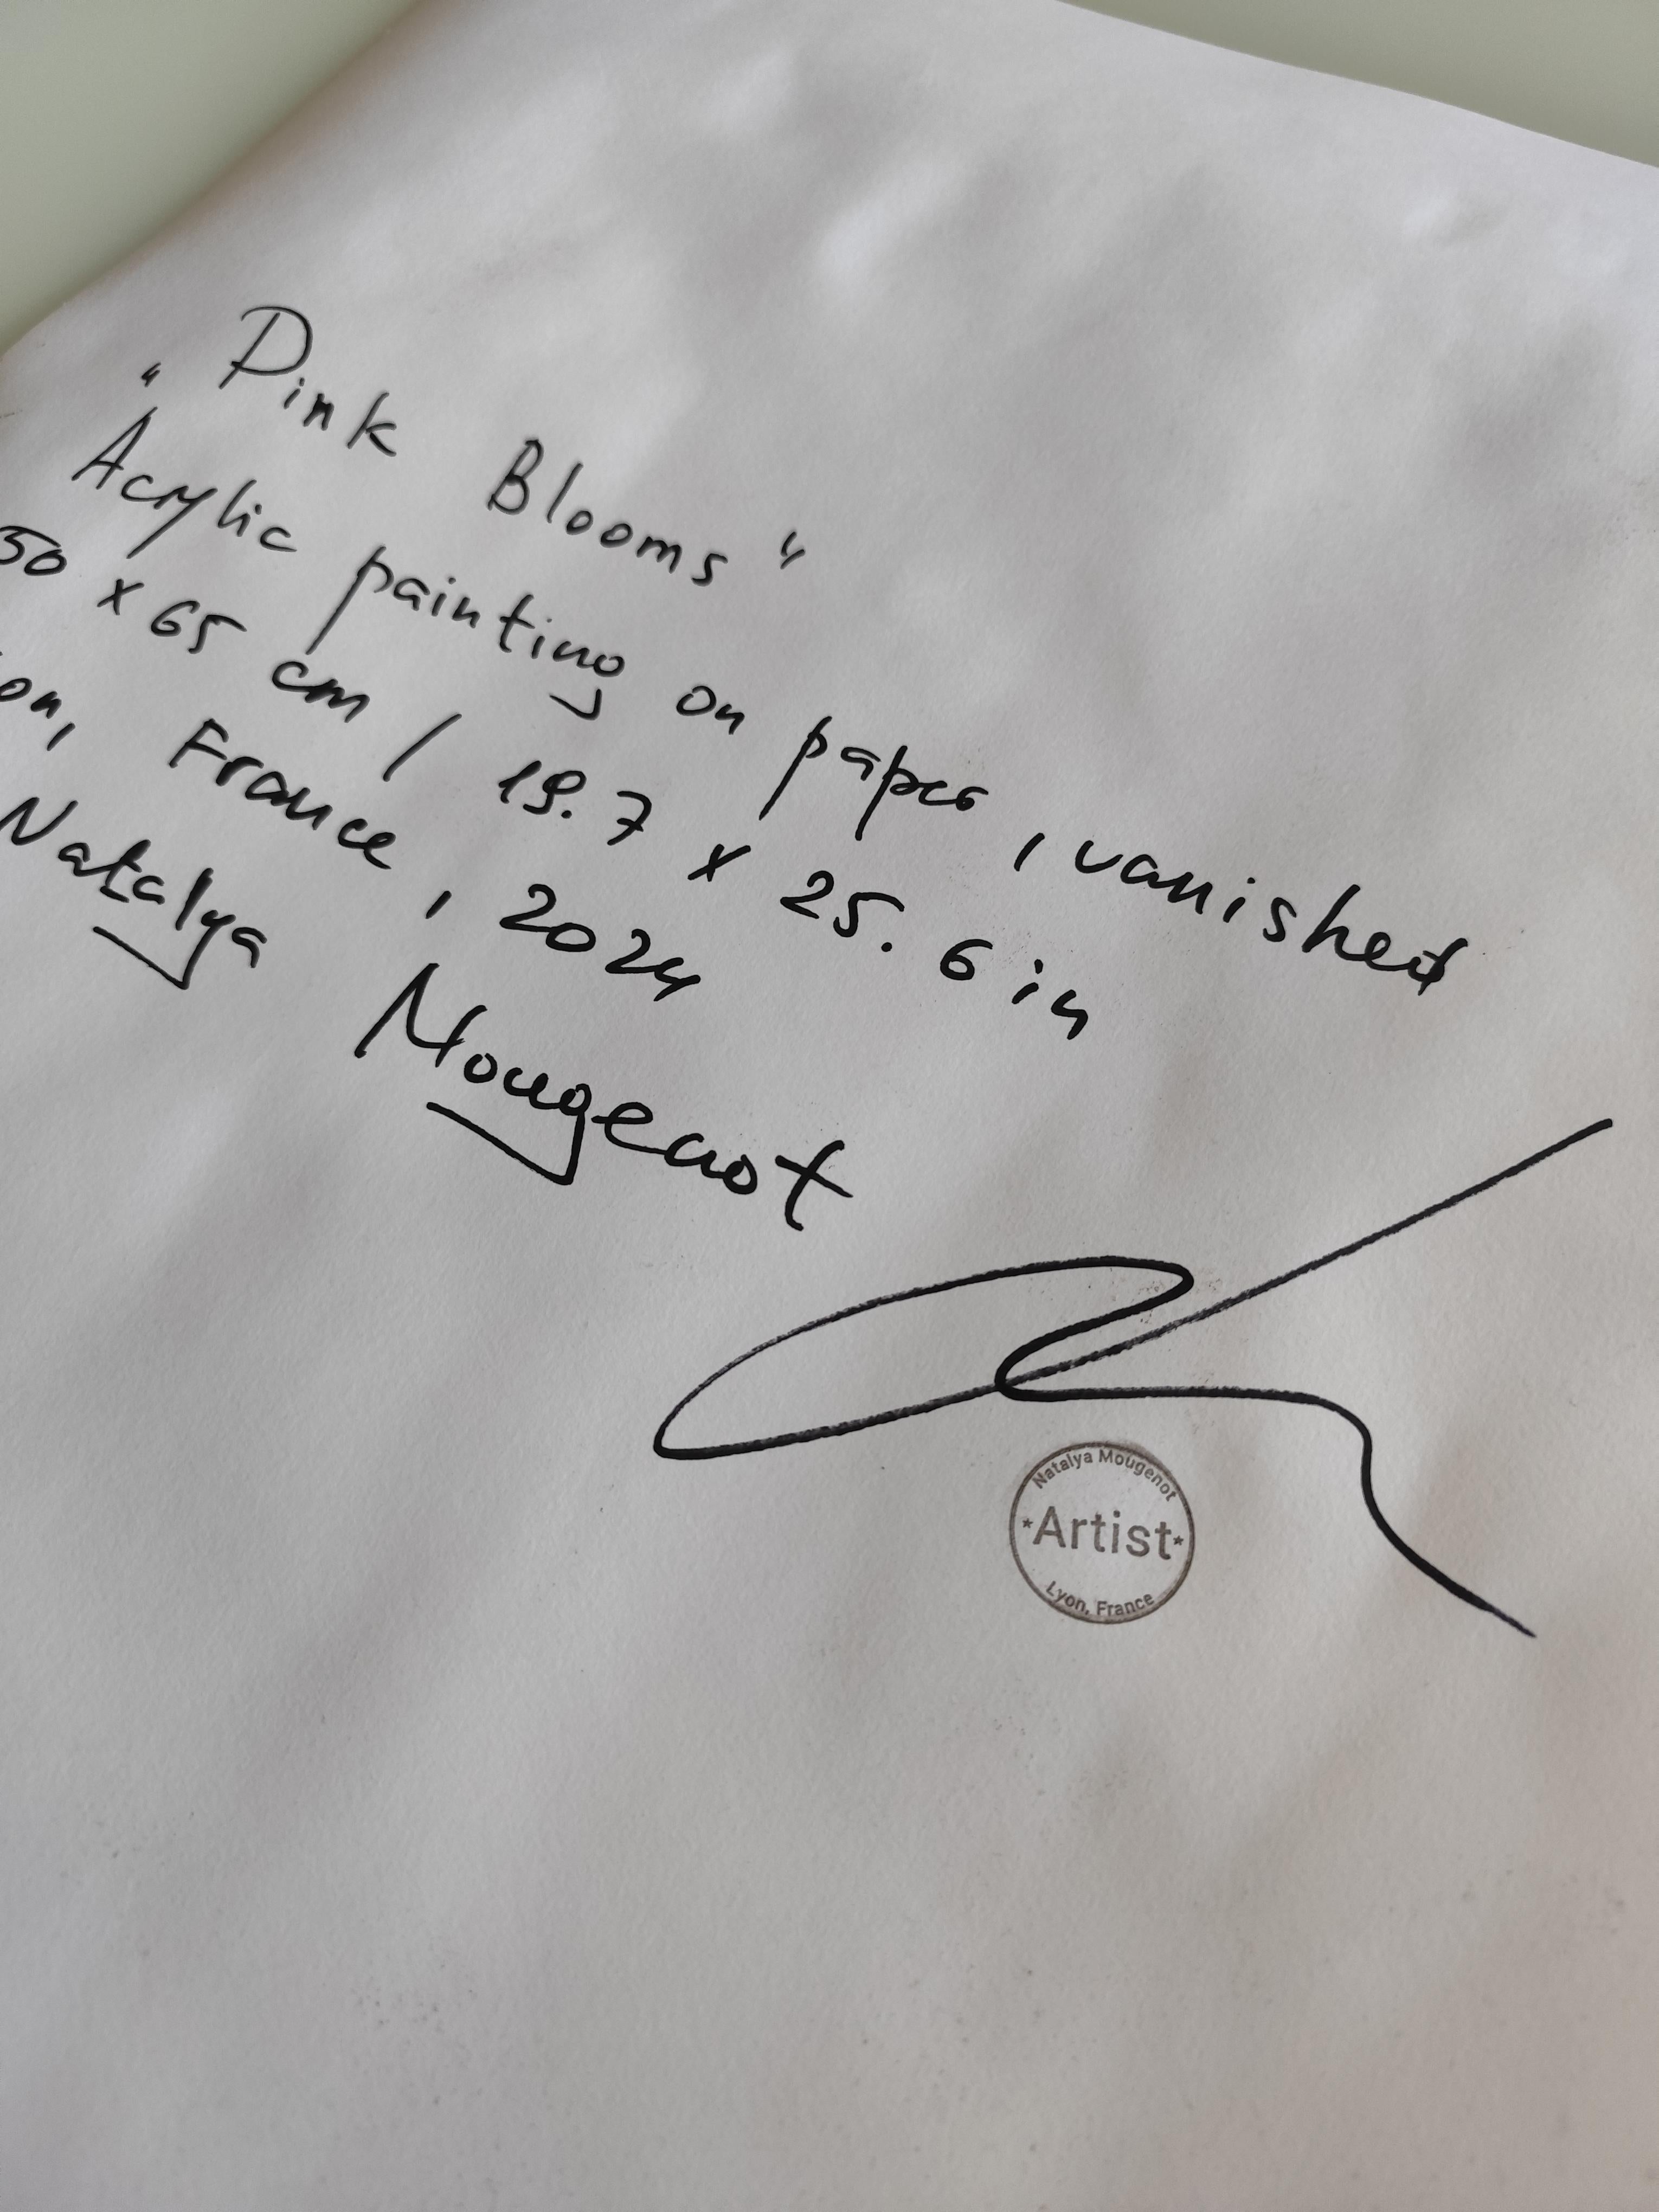 "Pink Blooms"
Acrylic painting on paper, vanished
50 x 65 cm / 19.7 x 25.6 in
on, France, 2024
Natalya Mougenot
Natalya Mougenot
*Artist*
Lyon, France